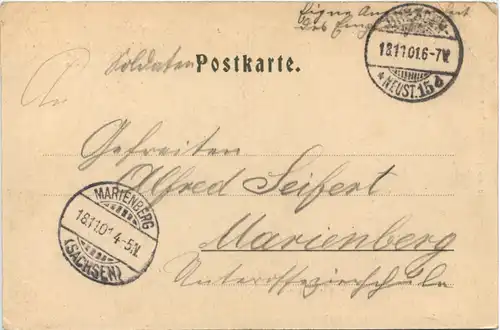 Eigne Angelegenheit
des Empf
Soldaten Postkarte.
An
DRESDEN-
18.11.01.6-7V.
*NEUST. 15 d
Gefreiten
Alfred Seifert
Marienberg
Unteroffizierschule
MARIENBERG
18.11.01 4-5N.
(SACHSEN)